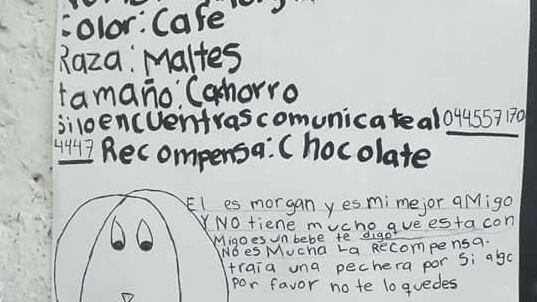 Color: Cafe
Raza: Maltes
tamaño: Cahorro
Si lo encuentras comunicate al 044557170
4447 Recompensa: Chocolate
El es morgan y es mi mejor aMigo
Y NO tiene mucho que esta con
Migo es un bebe te digo
NO es Mucha La Recompensa.
traia una pechera por si algo
Por favor no te lo quedes